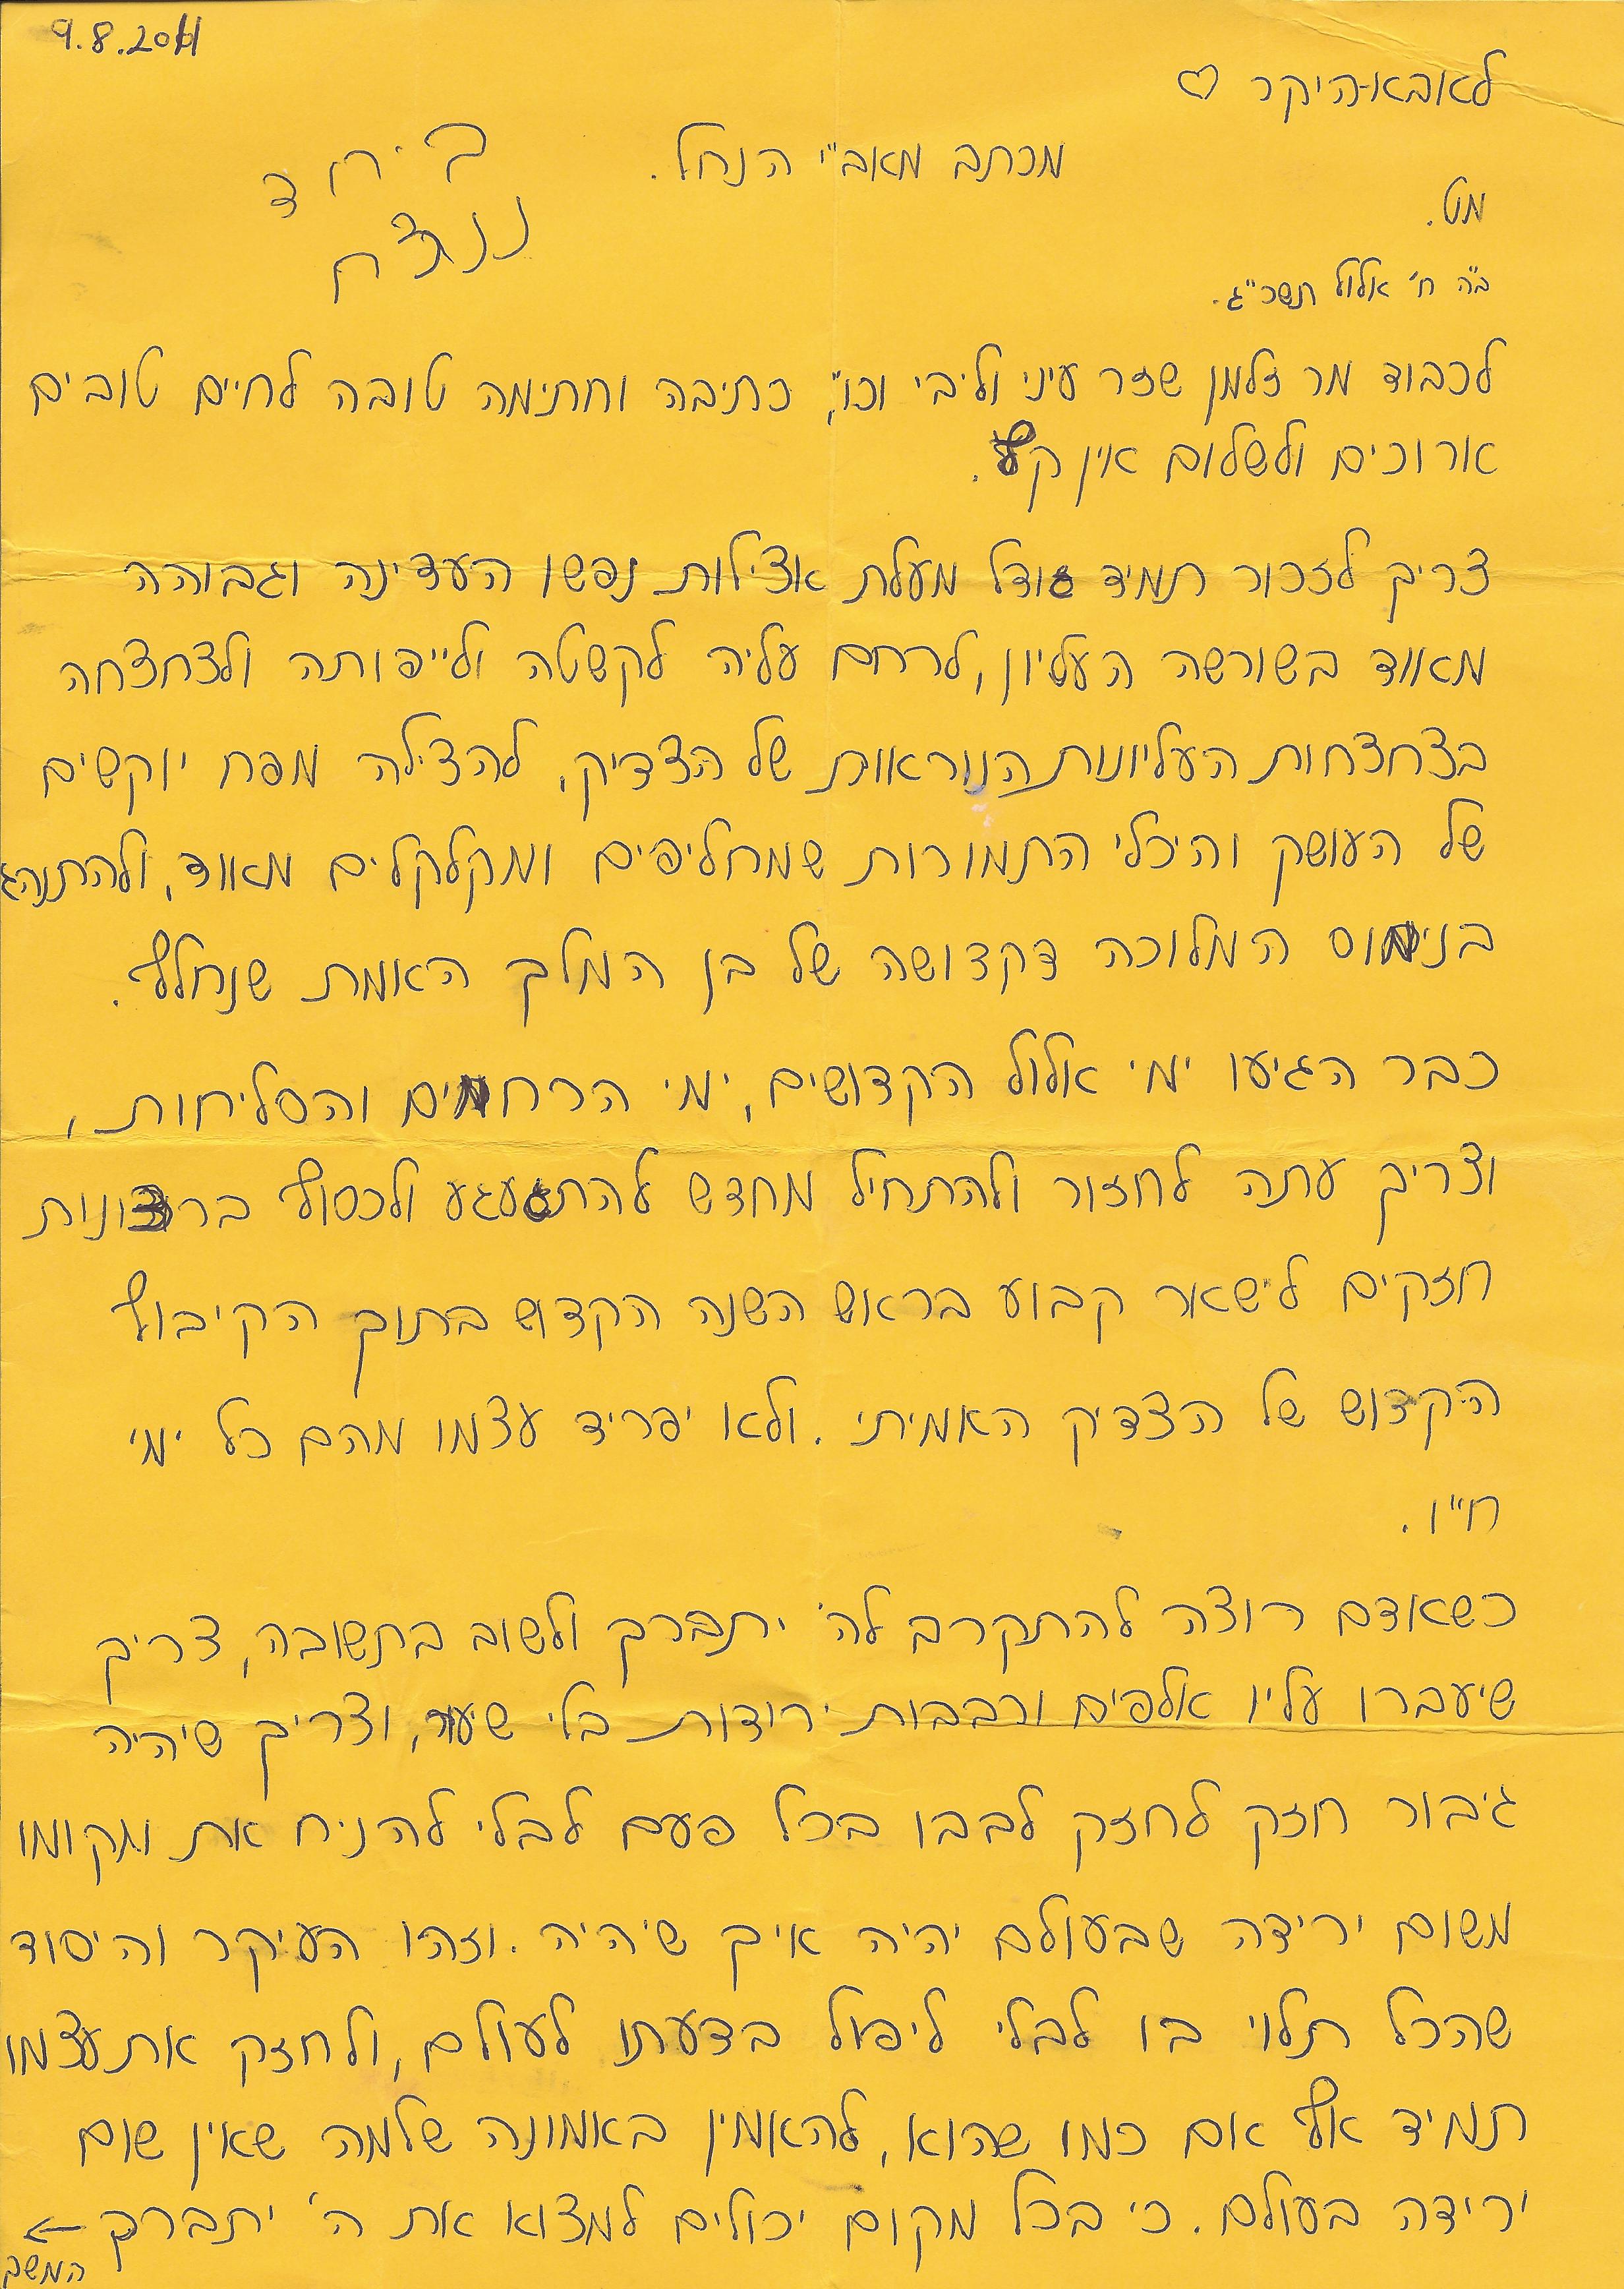 9.8.2011
לאבא-היקר ♡
מכתב מאב"י הנחל.
מט.
ב"ה ח' אלול תשכ"ג.
לכבוד מר זלמן שזר עיני וליבי וכו', כתיבה וחתימה טובה לחיים טובים
ארוכים ולשלום אין קץ.
צריך לזכור תמיד גודל מעלת אצילות נפשו העדינה וגבוהה
מאווד בשורשה העליון, לרחם עליה לקשטה ולייפותה ולצחצחה
בצחצחות העליונות הנוראות של הצדיק, להצילה מפח יוקשים
של העושק והיכלי התמורות שמחליפים ומקלקלים מאווד, ולהתנהג
בנימוס המלוכה דקדושה של בן המלך האמת שנחלף.
כבר הגיעו ימי אלול הקדושים, ימי הרחמים והסליחות,
וצריך עתה לחזור ולהתחיל מחדש להתגעגע ולכסוף ברצונות
חזקים לישאר קבוע בראש השנה הקדוש בתוך הקיבוץ
הקדוש של הצדיק האמיתי. ולא יפריד עצמו מהם כל ימי
ח"ו.
כשאדם רוצה להתקרב לה' יתברך ולשוב בתשובה, צריך
שיעברו עליו אלפים ורבבות ירודות בלי שיעור, וצריך שיהיה
גיבור חזק לחזק לבבו בכל פעם לבלי להניח את מקומו
משום ירידה שבעולם יהיה איך שיהיה. וזהו העיקר והיסוד
שהכל תלוי בו לבלי ליפול בדעתו לעולם, ולחזק את עצמו
תמיד אף אם כמו שהוא, להאמין באמונה שלמה שאין שום
ירידה בעולם. כי בכל מקום יכולים למצוא את ה' יתברך ←
המשך